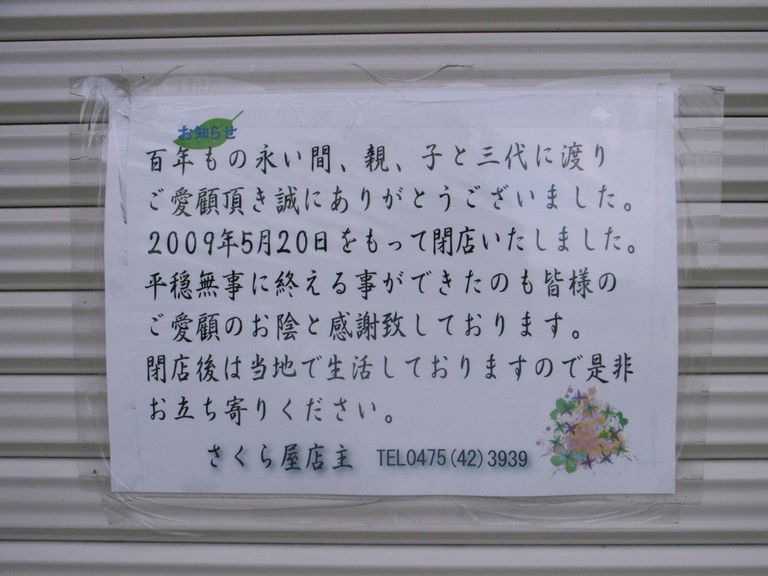 お知らせ
百年もの永い間、親、子と三代に渡り
ご愛顧頂き誠にありがとうございました。
2009年5月20日をもって閉店いたしました。
平穏無事に終える事ができたのも皆様の
ご愛顧のお陰と感謝致しております。
閉店後は当地で生活しておりますので是非
お立ち寄りください。
さくら屋店主 TEL0475(42)3939